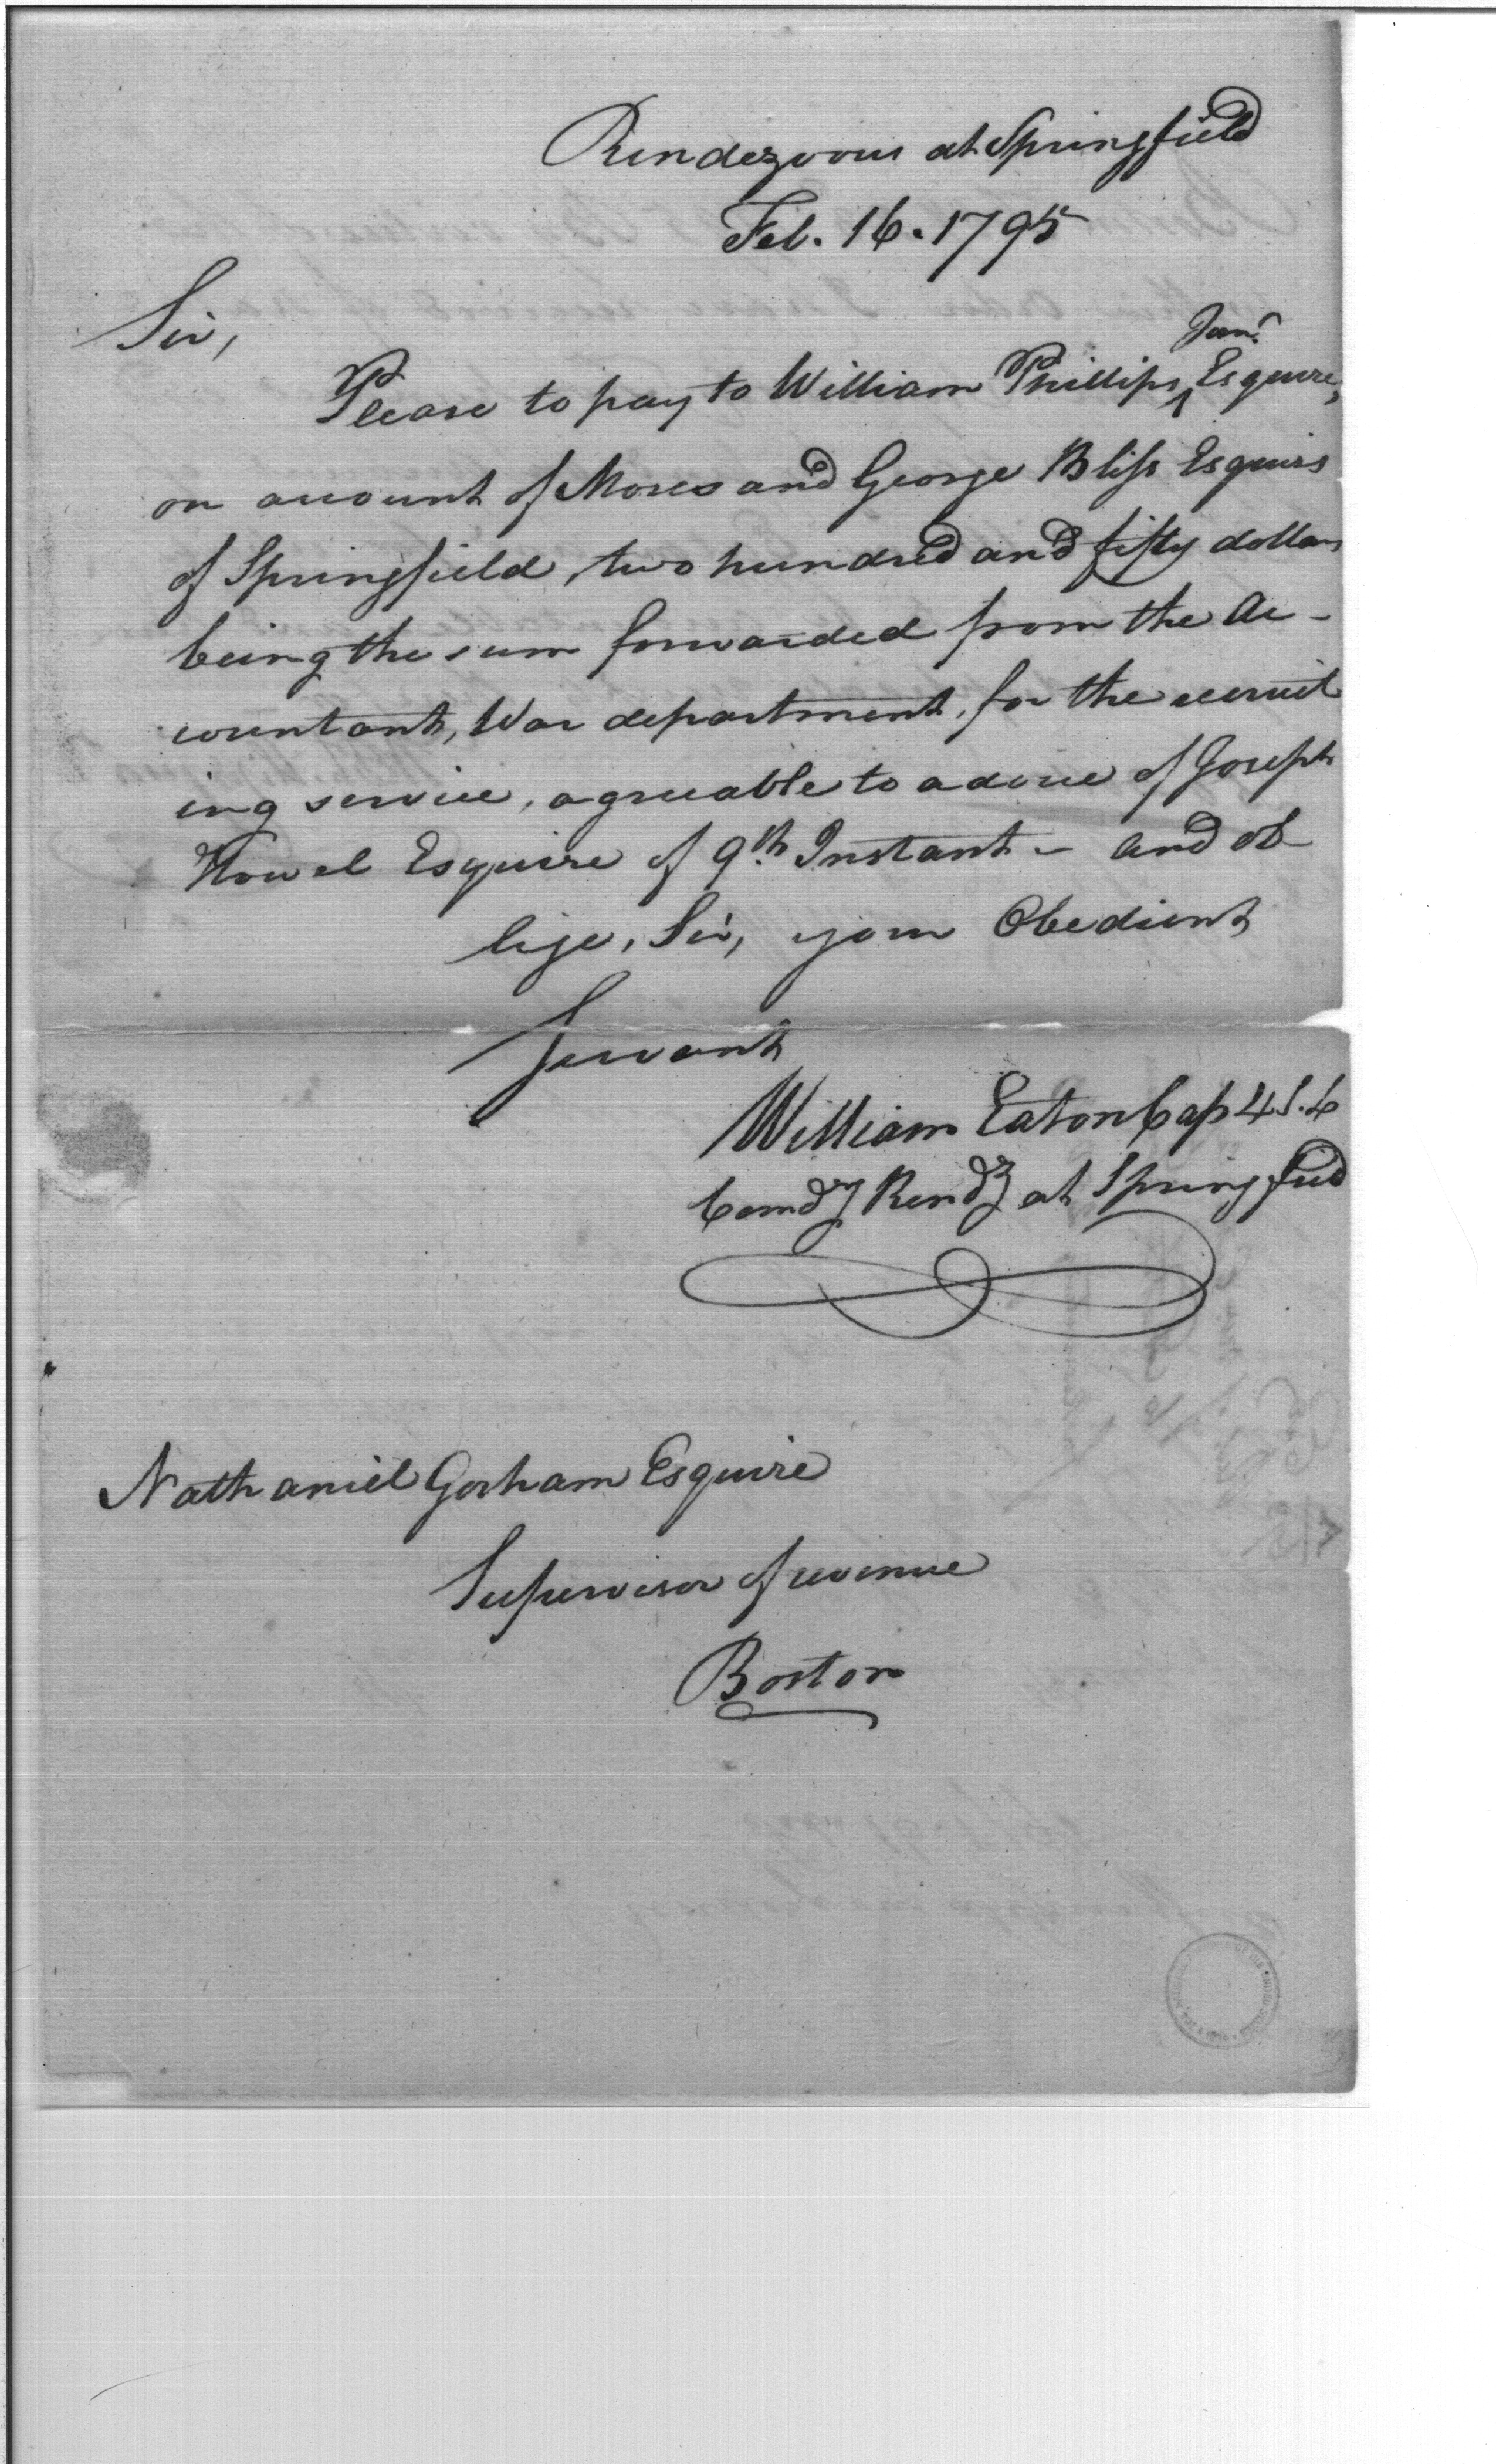 Rendezvous at Springfield
Feb. 16. 1795
Sir,
Junr.
Please to pay to William Phillips ^ Esquire,
on account of Moses and George Bliss Esquirs
of Springfield, two hundred and fifty dollars
being the sum forwarded from the Ac-
countant, War department, for the recruit
ing service, agreeable to advice of Joseph
Howel Esquire of 9th Instant – and ob-
lige, Sir, your Obedient
Servant
William Eaton Cap 4 S. L
Comdg Rendz at Springfield
Nathaniel Gorham Esquire
Supervisor of revenue
Boston